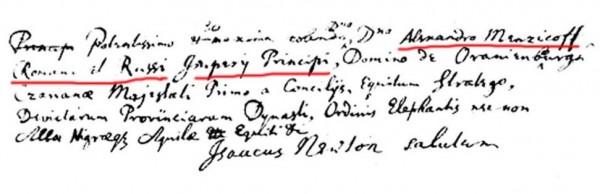 Principi Potentissimo Honoratissimo colendo Dno Dno Alexandro Menzicoff
Romani et Russi Imperij Principi, Domino de Oranienburgh
Czarianæ Majestati Primo a Concilijs, Equitum Stratego,
Devictarum Provinciarum Dynasti, Ordinis Elephantis nec non
Albæ Nigræq Aquilæ Equiti &c
Isaacus Newton salutem